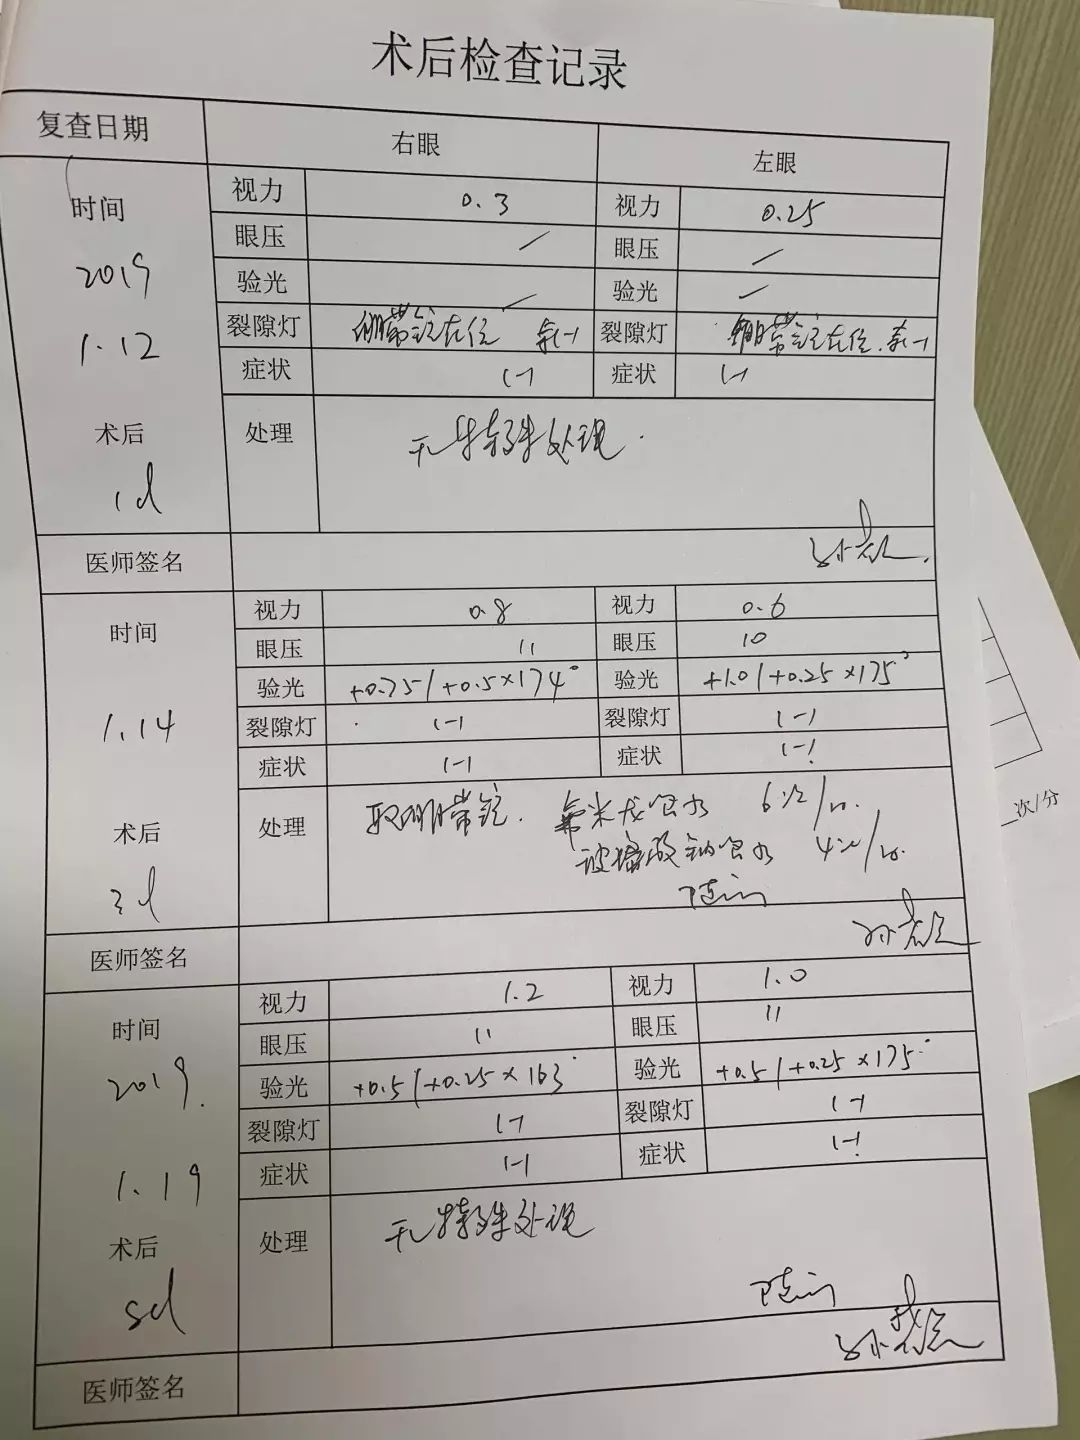 术后检查记录
复查日期 右眼 左眼
时间 视力 0.3 视力 0.25
2019 眼压 / 眼压 /
验光 / 验光 /
1.12 裂隙灯 绷带镜在位 余(-) 裂隙灯 绷带镜在位.余(-)
症状 (-) 症状 (-)
术后 处理 无特殊处理.
1d
医师签名
时间 视力 0.8 视力 0.6
眼压 11 眼压 10
验光 +0.75/+0.5×174° 验光 +1.0/+0.25×175°
1.14 裂隙灯 (-) 裂隙灯 (-)
症状 (-) 症状 (-)
术后 处理 取绷带镜. 氟米龙眼水 6次/日.
3d 玻璃酸钠眼水 4次/日.
随访
医师签名
时间 视力 1.2 视力 1.0
眼压 11 眼压 11
2019. 验光 +0.5/+0.25×163° 验光 +0.5/+0.25×175°
裂隙灯 (-) 裂隙灯 (-)
1.19 症状 (-) 症状 (-)
术后 处理 无特殊处理
随访
医师签名
次/分